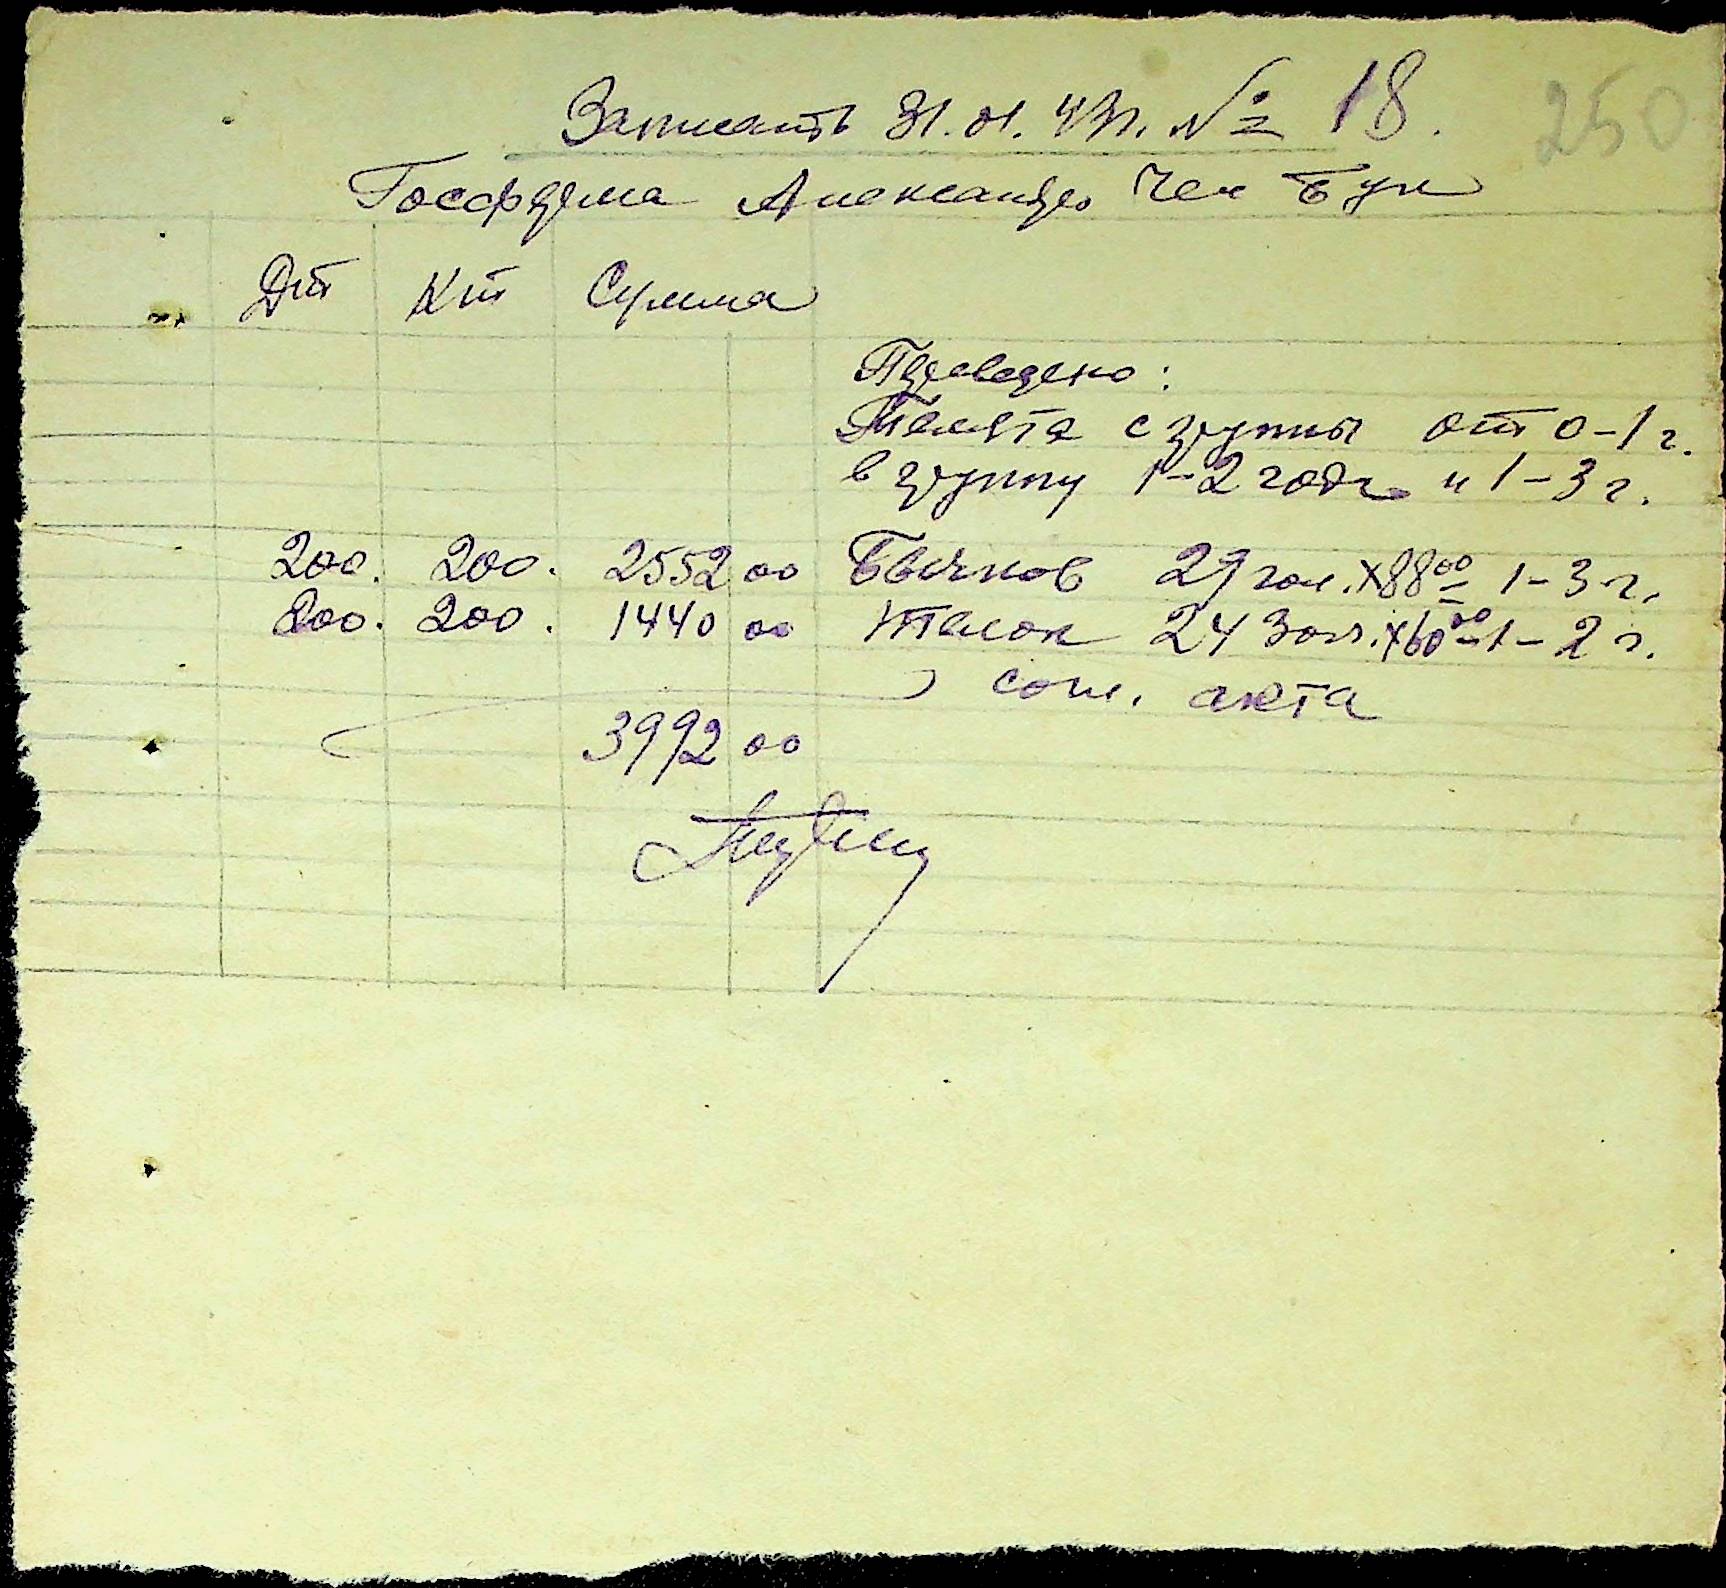 Записать 31.01.43г. № 18.
250
Госферма Александро Чек Бук
Дт Кт Сумма
Переведено:
Телята с группы от 0-1 г.
в группу 1-2 года и 1-3 г.
200. 200. 2552 00 Бычков 29 гол. х 88 00 1-3 г.
200. 200. 1440 00 Телок 24 гол. х 60 00 - 1-2 г.
согл. акта
3992 00